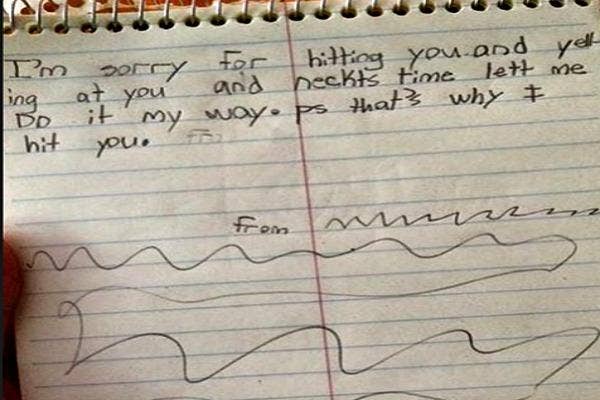 I'm sorry for hitting you and yell
ing at you and neckts time lett me
Do it my way. ps that's why I
hit you.
from